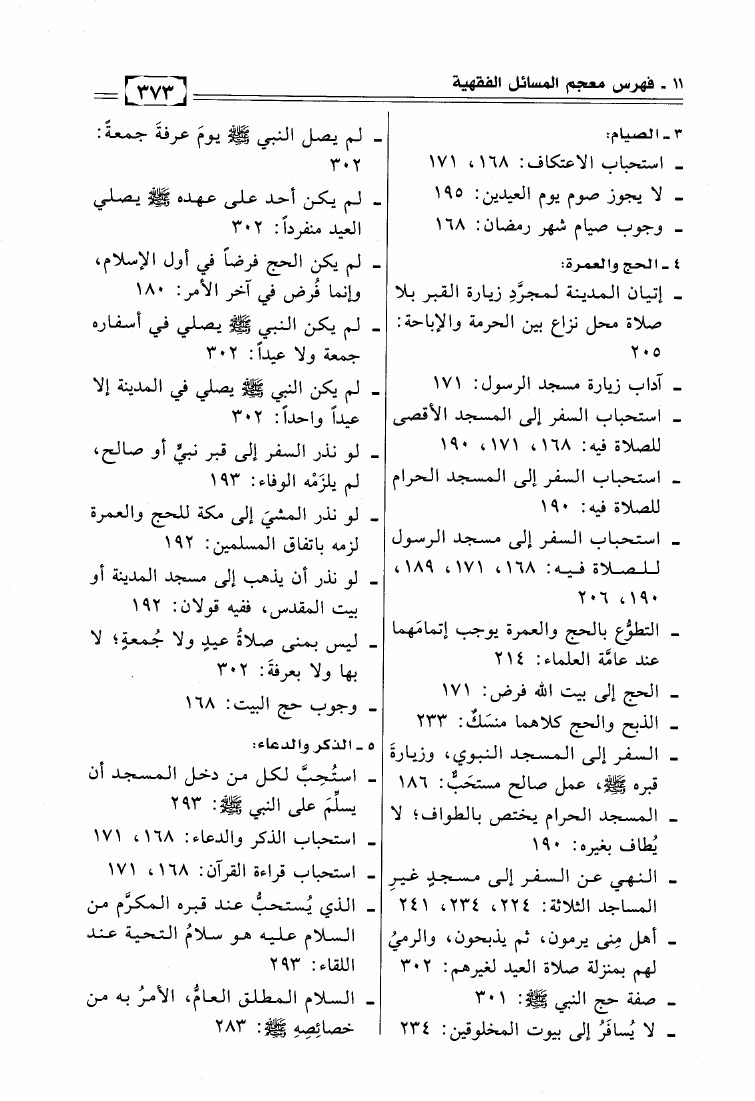 ١١ ـ فهرس معجم المسائل الفقهية
٣٧٣
٣ ـ الصيام:
ـ استحباب الاعتكاف: ١٦٨، ١٧١
ـ لا يجوز صوم يوم العيدين: ١٩٥
ـ وجوب صيام شهر رمضان: ١٦٨
٤ ـ الحج والعمرة:
ـ إتيان المدينة لمجرَّدِ زيارة القبر بلا
صلاة محل نزاع بين الحرمة والإباحة:
٢٠٥
ـ آداب زيارة مسجد الرسول: ١٧١
ـ استحباب السفر إلى المسجد الأقصى
للصلاة فيه: ١٦٨، ١٧١، ١٩٠
ـ استحباب السفر إلى المسجد الحرام
للصلاة فيه: ١٩٠
ـ استحباب السفر إلى مسجد الرسول
للصلاة فيه: ١٦٨، ١٧١، ١٨٩،
١٩٠، ٢٠٦
ـ التطوُّع بالحج والعمرة يوجب إتمامَهما
عند عامَّة العلماء: ٢١٤
ـ الحج إلى بيت الله فرض: ١٧١
ـ الذبح والحج كلاهما منسَكٌ: ٢٣٣
ـ السفر إلى المسجد النبوي، وزيارةَ
قبره ﷺ، عمل صالح مستحَبٌّ: ١٨٦
ـ المسجد الحرام يختص بالطواف؛ لا
يُطاف بغيره: ١٩٠
ـ النهي عن السفر إلى مسجدٍ غيرِ
المساجد الثلاثة: ٢٢٤، ٢٣٤، ٢٤١
ـ أهل مِنى يرمون، ثم يذبحون، والرميُ
لهم بمنزلة صلاة العيد لغيرهم: ٣٠٢
ـ صفة حج النبي ﷺ: ٣٠١
ـ لا يُسافَرُ إلى بيوت المخلوقين: ٢٣٤
ـ لم يصل النبي ﷺ يومَ عرفةَ جمعةً:
٣٠٢
ـ لم يكن أحد على عهده ﷺ يصلي
العيد منفرداً: ٣٠٢
ـ لم يكن الحج فرضاً في أول الإسلام،
وإنما فُرض في آخر الأمر: ١٨٠
ـ لم يكن النبي ﷺ يصلي في أسفاره
جمعة ولا عيداً: ٣٠٢
ـ لم يكن النبي ﷺ يصلي في المدينة إلا
عيداً واحداً: ٣٠٢
ـ لو نذر السفر إلى قبر نبيٍّ أو صالح،
لم يلزَمْه الوفاء: ١٩٣
ـ لو نذر المشيَ إلى مكة للحج والعمرة
لزمه باتفاق المسلمين: ١٩٢
ـ لو نذر أن يذهب إلى مسجد المدينة أو
بيت المقدس، ففيه قولان: ١٩٢
ـ ليس بمنى صلاةُ عيدٍ ولا جُمعةٍ؛ لا
بها ولا بعرفةَ: ٣٠٢
ـ وجوب حج البيت: ١٦٨
٥ ـ الذكر والدعاء:
ـ استُحِبَّ لكل من دخل المسجد أن
يسلِّمَ على النبي ﷺ: ٢٩٣
ـ استحباب الذكر والدعاء: ١٦٨، ١٧١
ـ استحباب قراءة القرآن: ١٦٨، ١٧١
ـ الذي يُستحبُّ عند قبره المكرَّم من
السلام عليه هو سلامُ التحية عند
اللقاء: ٢٩٣
ـ السلام المطلق العامُّ، الأمرُ به من
خصائِصِهِ ﷺ: ٢٨٣